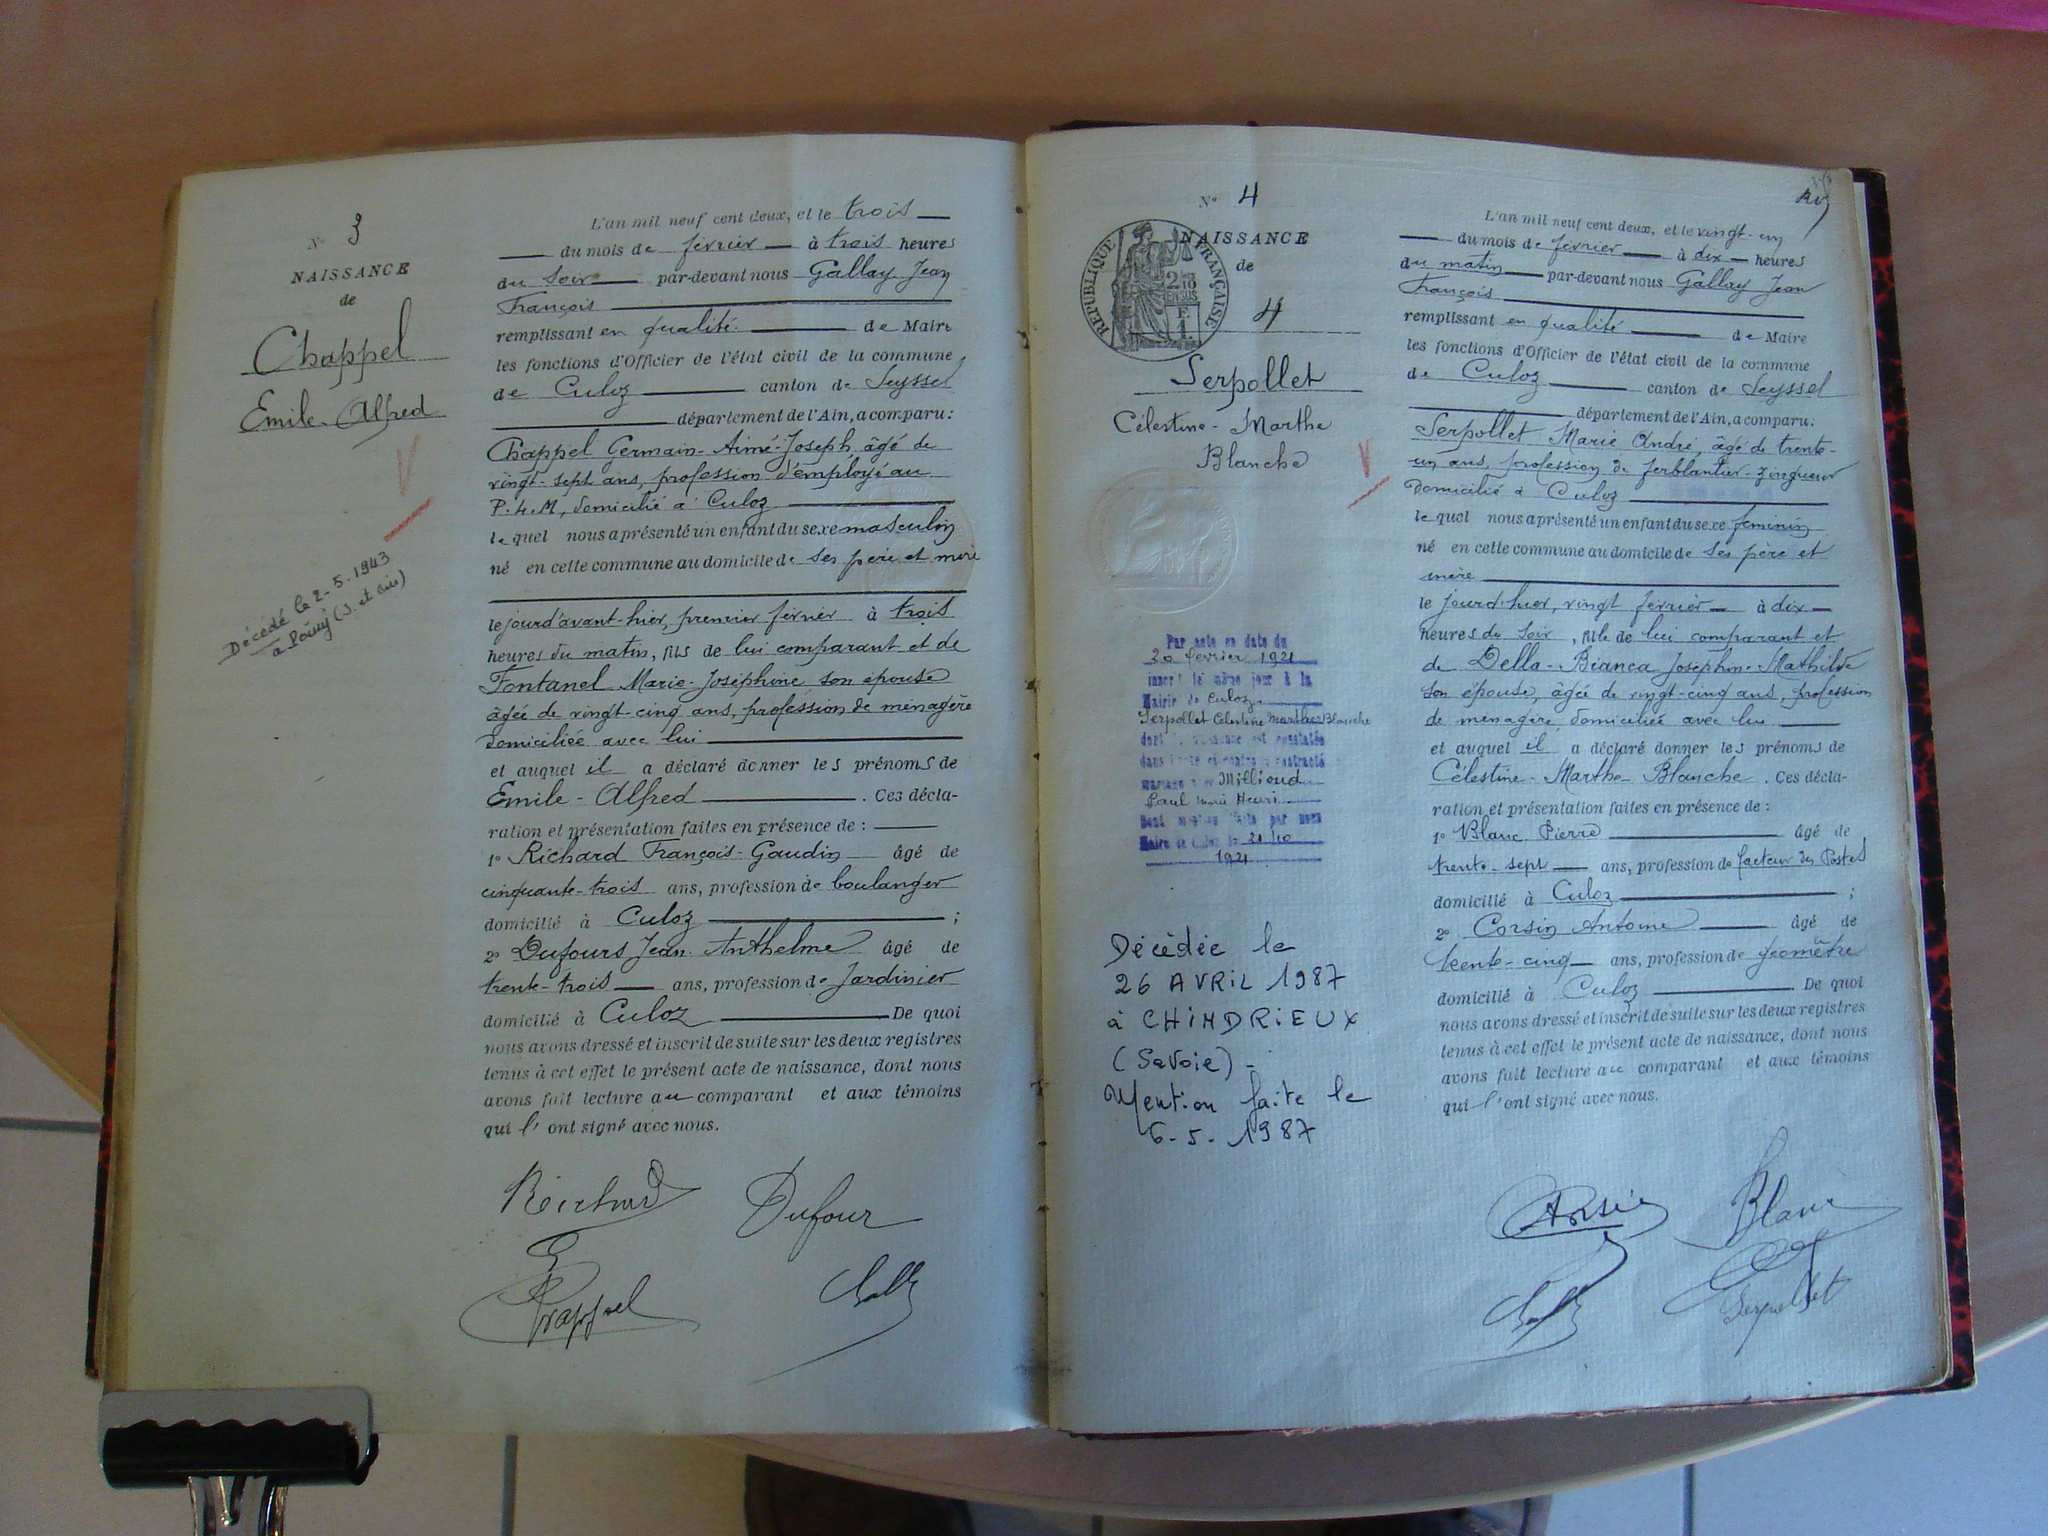 N° 3
NAISSANCE
de
Chappel
Emile-Alfred
Décédé le 2-5-1943
a Poissy (S. et Oise)
L'an mil neuf cent deux, et le trois
du mois de février à trois heures
du soir par-devant nous Gallay Jean
François
remplissant en qualité de Maire
les fonctions d'Officier de l'état civil de la commune
de Culoz canton de Seyssel
département de l'Ain, a comparu:
Chappel Germain-Aimé-Joseph, âgé de
vingt-sept ans, profession d'employé au
P.L.M, domicilié à Culoz
lequel nous a présenté un enfant du sexe masculin
né en cette commune au domicile de ses père et mère
le jour d'avant-hier, premier février à trois
heures du matin, fils de lui comparant et de
Fontanel Marie-Joséphine son épouse
âgée de vingt-cinq ans, profession de ménagère
domiciliée avec lui
et auquel il a déclaré donner les prénoms de
Emile-Alfred. Ces décla-
ration et présentation faites en présence de :
1° Richard François-Gaudin âgé de
cinquante-trois ans, profession de boulanger
domicilié à Culoz ;
2° Dufours Jean-Anthelme âgé de
trente-trois ans, profession de Jardinier
domicilié à Culoz De quoi
nous avons dressé et inscrit de suite sur les deux registres
tenus à cet effet le présent acte de naissance, dont nous
avons fait lecture au comparant et aux témoins
qui l'ont signé avec nous.
Richard Dufour
Chappel
N° 4
NAISSANCE
de
REPUBLIQUE FRANÇAISE
4
Serpollet
Célestine-Marthe
Blanche
Par acte en date du
20 février 1921
inscrit le même jour à la
Mairie de Culoz
Serpollet Célestine Marthe Blanche
dont la naissance est constatée
dans l'acte ci-contre a contracté
mariage avec Millioud
Paul Henri
Dont mention faite par nous
Maire de Culoz le 21/10
1921
Décédée le
26 AVRIL 1987
à CHINDRIEUX
(Savoie)-
Mention faite le
6-5-1987
L'an mil neuf cent deux, et le vingt-un
du mois de février à dix heures
du matin par-devant nous Gallay Jean
François
remplissant en qualité de Maire
les fonctions d'Officier de l'état civil de la commune
de Culoz canton de Seyssel
département de l'Ain, a comparu:
Serpollet Marie André, âgé de trente-
un ans, profession de ferblantier-zingueur
domicilié à Culoz
lequel nous a présenté un enfant du sexe féminin
né en cette commune au domicile de ses père et
mère
le jour d'hier, vingt février à dix
heures du soir, fille de lui comparant et
de Della-Bianca Joséphine-Mathilde
son épouse, âgée de vingt-cinq ans, profession
de ménagère, domiciliée avec lui
et auquel il a déclaré donner les prénoms de
Célestine-Marthe-Blanche. Ces décla-
ration et présentation faites en présence de :
1° Blanc Pierre âgé de
trente-sept ans, profession de facteur des Postes
domicilié à Culoz ;
2° Corsin Antoine âgé de
trente-cinq ans, profession de géomètre
domicilié à Culoz De quoi
nous avons dressé et inscrit de suite sur les deux registres
tenus à cet effet le présent acte de naissance, dont nous
avons fait lecture au comparant et aux témoins
qui l'ont signé avec nous.
Corsin Blanc
Serpollet